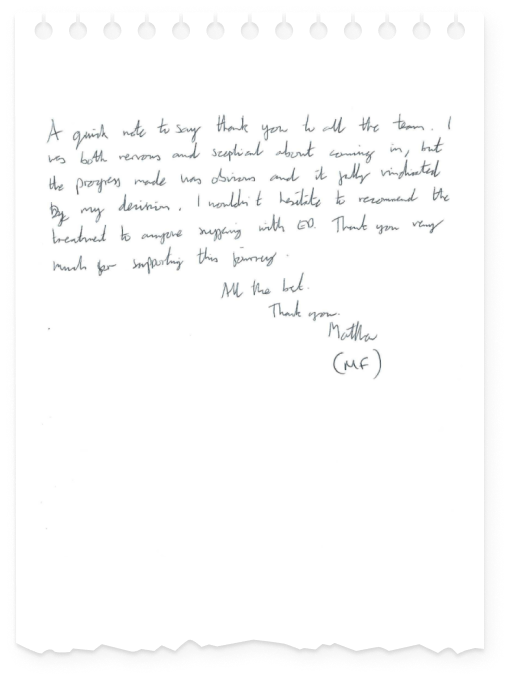 A quick note to say thank you to all the team. I
was both nervous and sceptical about coming in, but
the progress made was obvious and it fully vindicated
By my decision. I wouldn't hesitate to recommend the
treatment to anyone suffering with ED. Thank you very
much for supporting this journey.
All the best.
Thank you.
(MF)